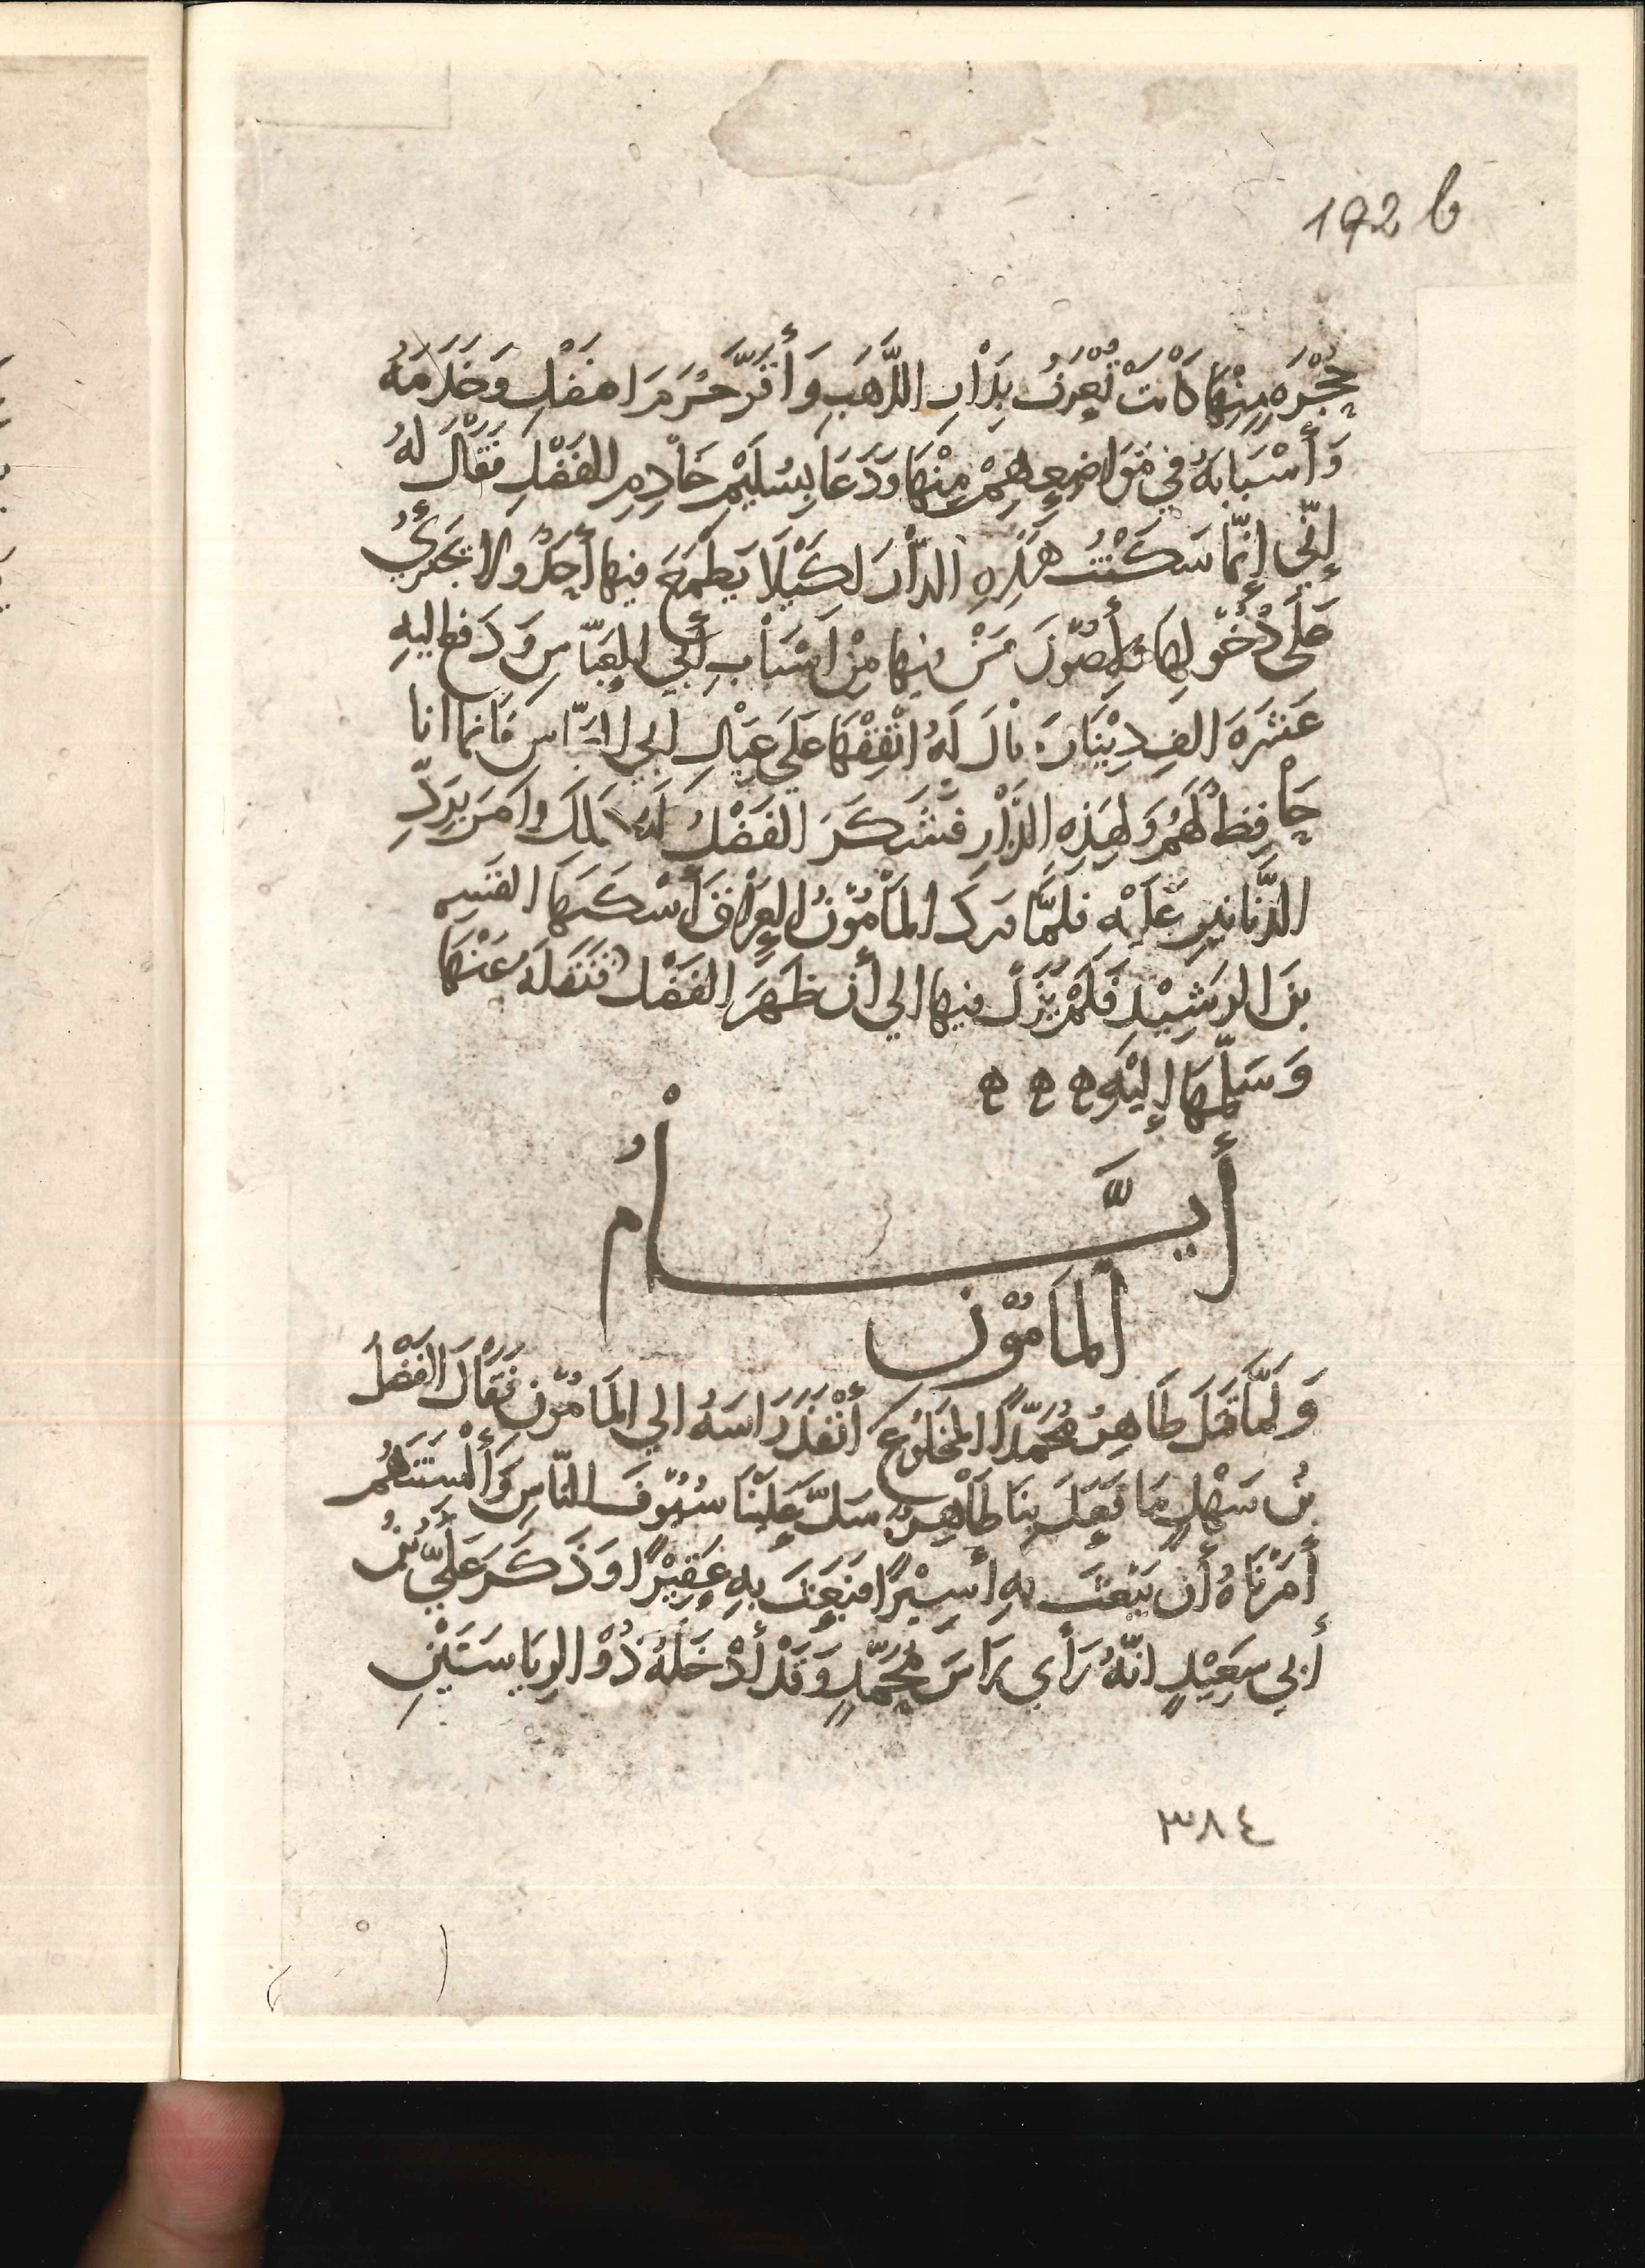 192 b
حُجْرَه مِنْهَا كَانَتْ تُعْرَفُ بِدَارِ الذَّهَبِ وَأَقَرَّ حُرَمَ الفَضْلِ وَخَدَمَهُ
وَأَسْبَابَهُ فِي مَوَاضِعِهِمْ مِنْهَا وَدَعَا بِسُلَيْم خَادِمِ الفَضْلِ فَقَالَ لَهُ
إِنِّي إِنَّمَا سَكَنْتُ هَذِهِ الدَّارَ لِكَيْلَا يَطْمَعَ فيها أحَدٌ ولا يَجْتَرِئُ
عَلَى دُخُولِهَا وَلِأَصُوْنَ مَنْ فِيها مِنْ اَسْبَابِ أَبِي العَبَّاسِ وَدَفع اليهِ
عَشَرَة الفِ دِيْنَارَ وقال لَهُ انْفِقْهَا عَلَى عِيَالِ ابي العَبَّاسِ فَانما انا
حَافِظٌ لَهُمْ وَلِهَذِهِ الدَّارِ فَشَكَرَ الفَضْلُ لَهُ ذَلكَ وامَرَ بِرَدِّ
الدَّنَانِيرِ عَلَيْهِ فلمَّا وردَ المَأمُوْنُ العِرَاقَ أَسْكَنَهَا القسِم
بنَ الرَشِيْدِ فَلَمْ يَزَلْ فيها الي أن ظَهَرَ الفَضْلُ فَنَقَلَهُ عَنْهَا
وَسَلَّمَهَا إِلَيْهِ ه ه ه
أَيَّـــامُ
المَأمُوْن
وَلَمَّا قتَلَ طَاهِرٌ مُحَمَّدًا المَخلُوعَ أَنْفَذَ رَاسَهُ الي المَامُوْنِ فَقَالَ الفَضْلُ
بنُ سَهْلٍ مَا فَعَلَ بِنَا طَاهِرٌ سَلَّ عَلَيْنَا سُيُوْفَ النَّاسِ وَأَلْسِنَتَهُمْ
أَمَرْنَاهُ أَن يَبْعَثَ بِهِ أَسِيْرًا فَبَعَثَ بِهِ عَقِيْرًا وَذَكَرَ عَلَيُّ بْنُ
أَبِي سَعِيْدٍ انَّهُ رَأَي رَاسَ مُحَمَّدٍ وَقَدْ أَدْخَلَهُ ذُوْ الرِيَاسَتَيْنِ
٣٨٤